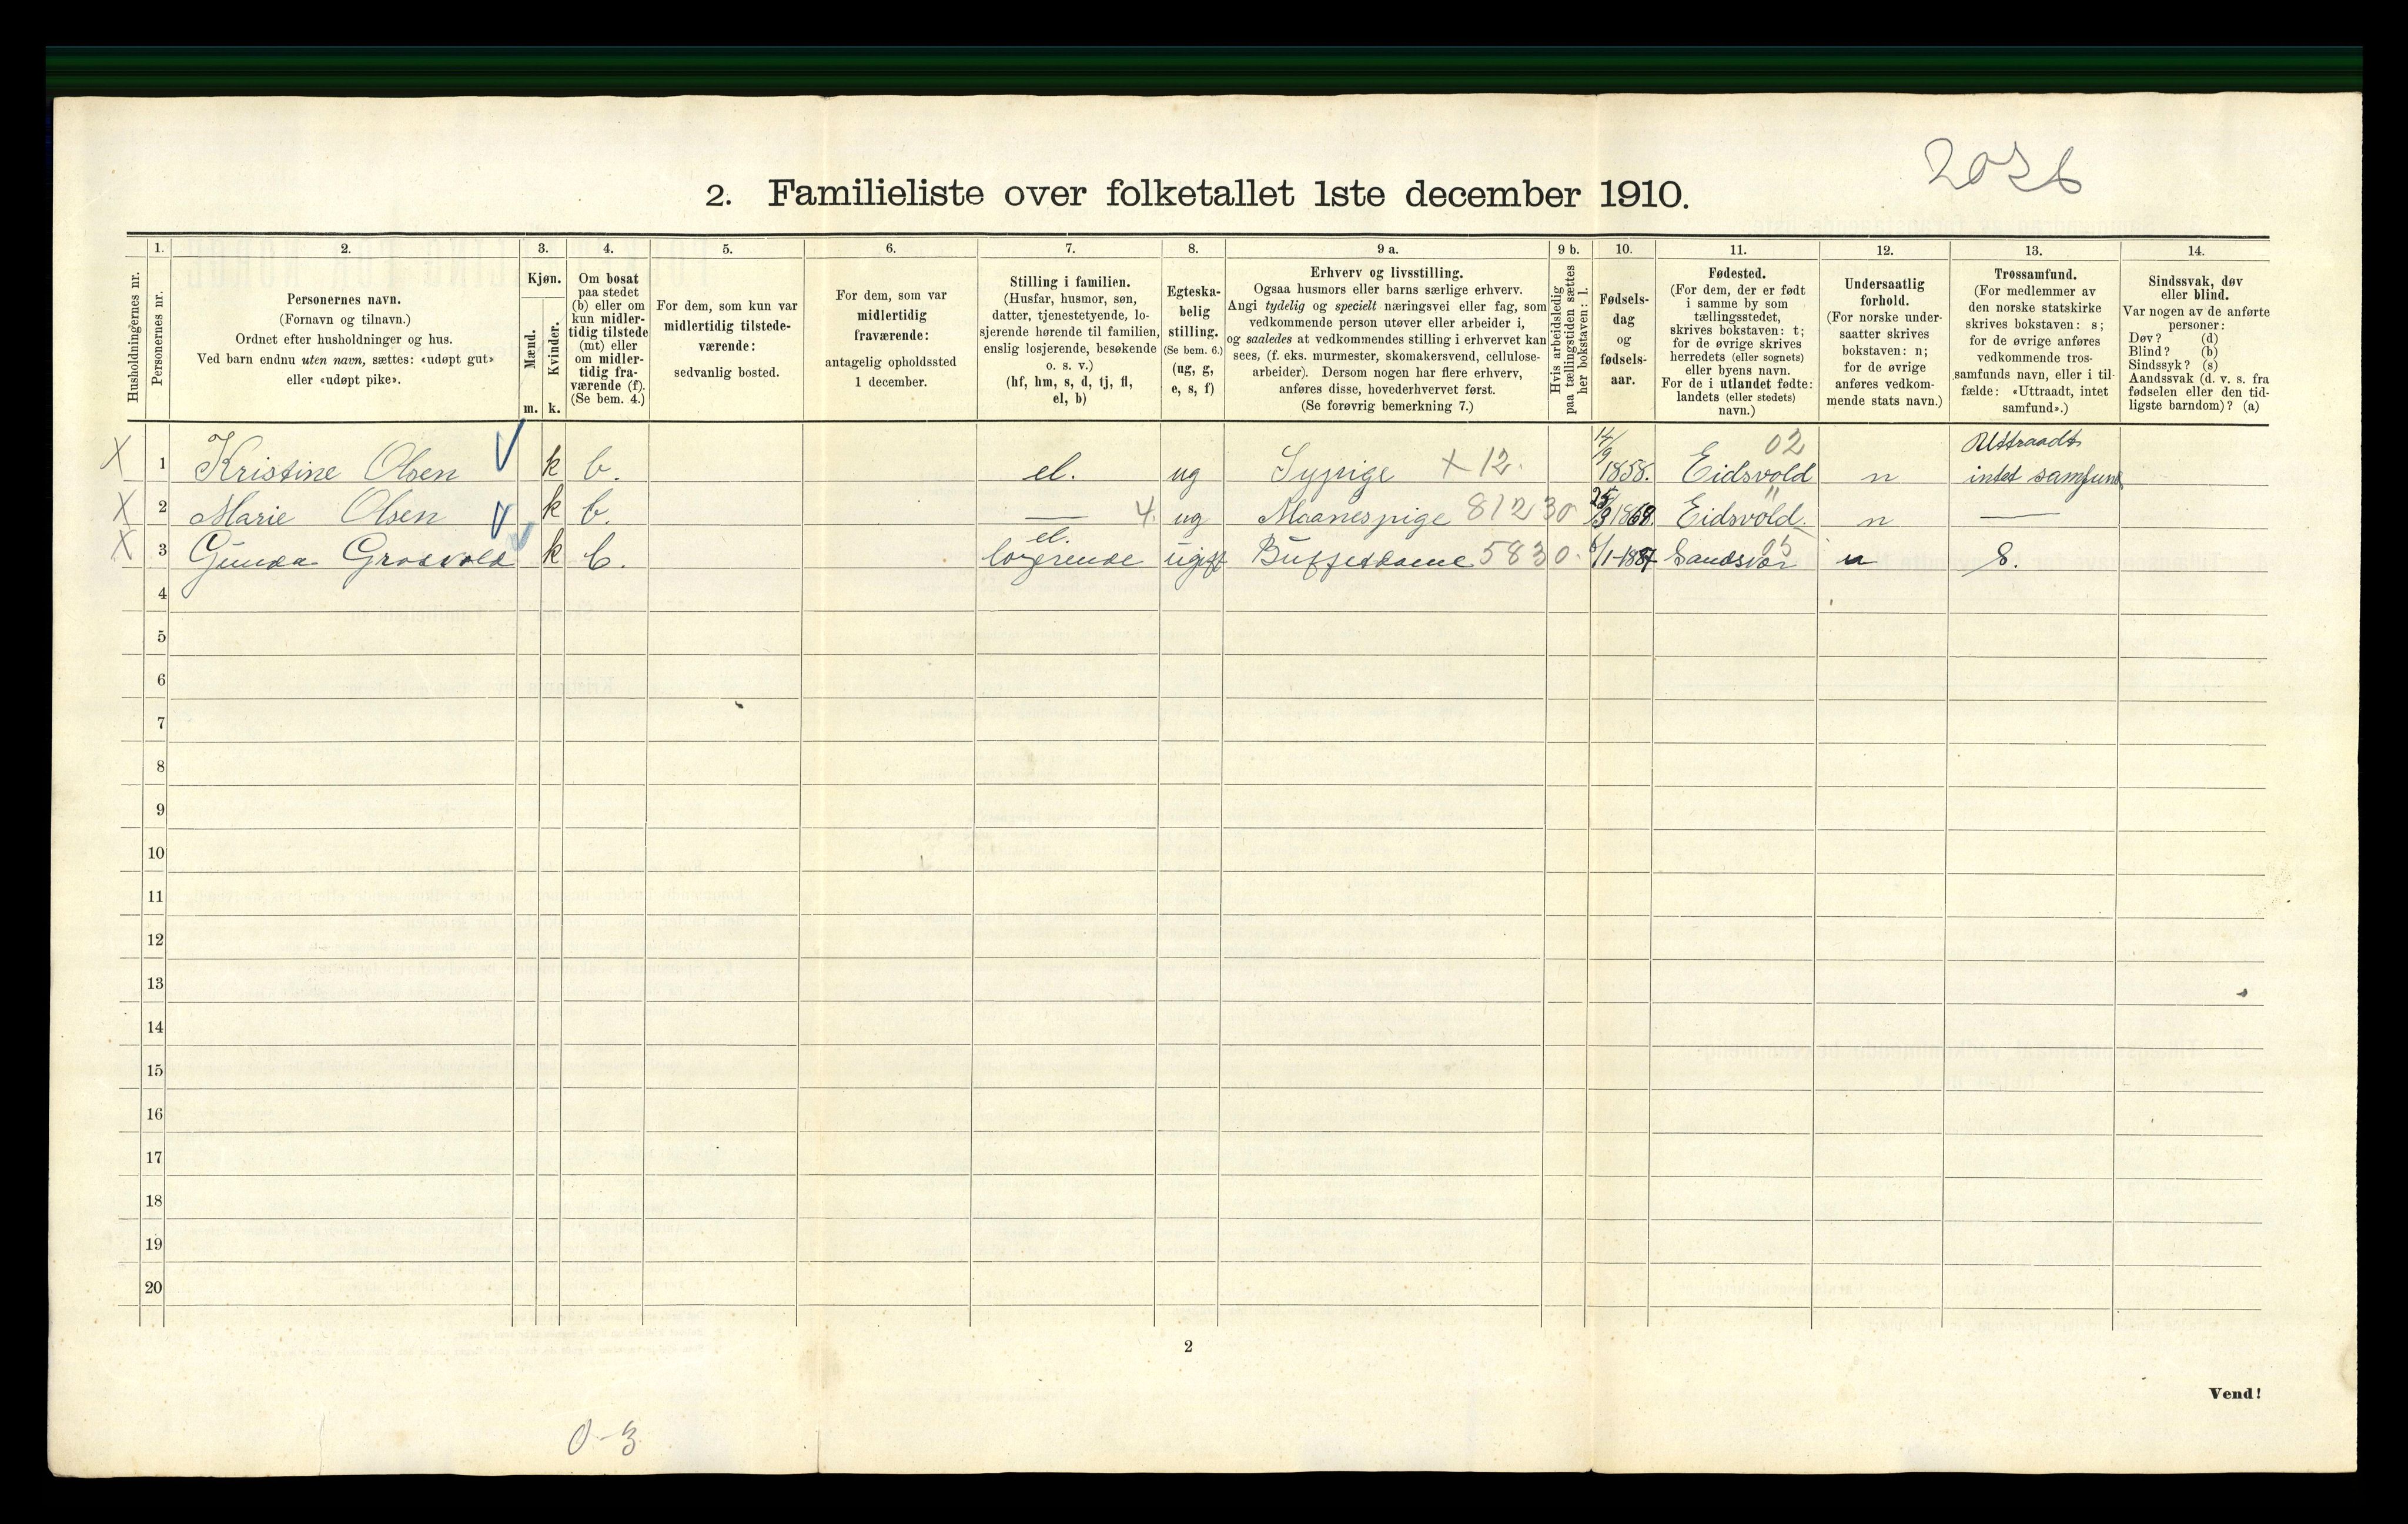 2. Familieliste over folketallet 1ste december 1910.
Husholdningernes nr.
1.
Personernes nr.
2.
Personernes navn.
(Fornavn og tilnavn.)
Ordnet efter husholdninger og hus.
Ved barn endnu uten navn, sættes: «udøpt gut»
eller «udøpt pike».
3.
Kjøn.
Mænd.
Kvinder.
m. k.
4.
Om bosat
paa stedet
(b) eller om
kun midler-
tidig tilstede
(mt) eller
om midler-
tidig fra-
værende (f).
(Se bem. 4.)
5.
For dem, som kun var
midlertidig tilstede-
værende:
sedvanlig bosted.
6.
For dem, som var
midlertidig
fraværende:
antagelig opholdssted
1 december.
7.
Stilling i familien.
(Husfar, husmor, søn,
datter, tjenestetyende, lo-
sjerende hørende til familien,
enslig losjerende, besøkende
o. s. v.)
(hf, hm, s, d, tj, fl,
el, b)
8.
Egteska-
belig
stilling.
(Se bem. 6.)
(ug, g,
e, s, f)
9 a.
Erhverv og livsstilling.
Ogsaa husmors eller barns særlige erhverv.
Angi tydelig og specielt næringsvei eller fag, som
vedkommende person utøver eller arbeider i,
og saaledes at vedkommendes stilling i erhvervet kan
sees, (f. eks. murmester, skomakersvend, cellulose-
arbeider). Dersom nogen har flere erhverv,
anføres disse, hovederhvervet først.
(Se forøvrig bemerkning 7.)
9 b.
Hvis arbeidsledig
paa tællingstiden sættes
her bokstaven: l.
10.
Fødsels-
dag
og
fødsels-
aar.
11.
Fødested.
(For dem, der er født
i samme by som
tællingsstedet,
skrives bokstaven: t;
for de øvrige skrives
herredets (eller sognets)
eller byens navn.
For de i utlandet fødte:
landets (eller stedets)
navn.)
12.
Undersaatlig
forhold.
(For norske under-
saatter skrives
bokstaven: n;
for de øvrige
anføres vedkom-
mende stats navn.)
13.
Trossamfund.
(For medlemmer av
den norske statskirke
skrives bokstaven: s;
for de øvrige anføres
vedkommende tros-
samfunds navn, eller i til-
fælde: «Uttraadt, intet
samfund».)
14.
Sindssvak, døv
eller blind.
Var nogen av de anførte
personer:
Døv? (d)
Blind? (b)
Sindssyk? (s)
Aandssvak (d. v. s. fra
fødselen eller den tid-
ligste barndom)? (a)
X 1 Kristine Olsen k b. el. ug Sypige X 12. 14/9 1858. Eidsvold 02 n Uttraadt
intet samfund
X 2 Marie Olsen k b. — 4. ug Maanespige 81230 1868. Eidsvold " n —
X 3 Gunda k b. el.
logerende ugift Buffetdame 5830. 6/1-1887 Sandsvær 05 n S.
4
5
6
7
8
9
10
11
12
13
14
15
16
17
18
19
20
2
Vend!
0-3